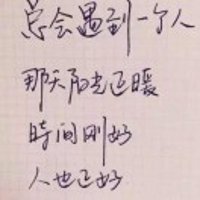 总会遇到一个人
那天阳光正暖
時间刚好
人也正好